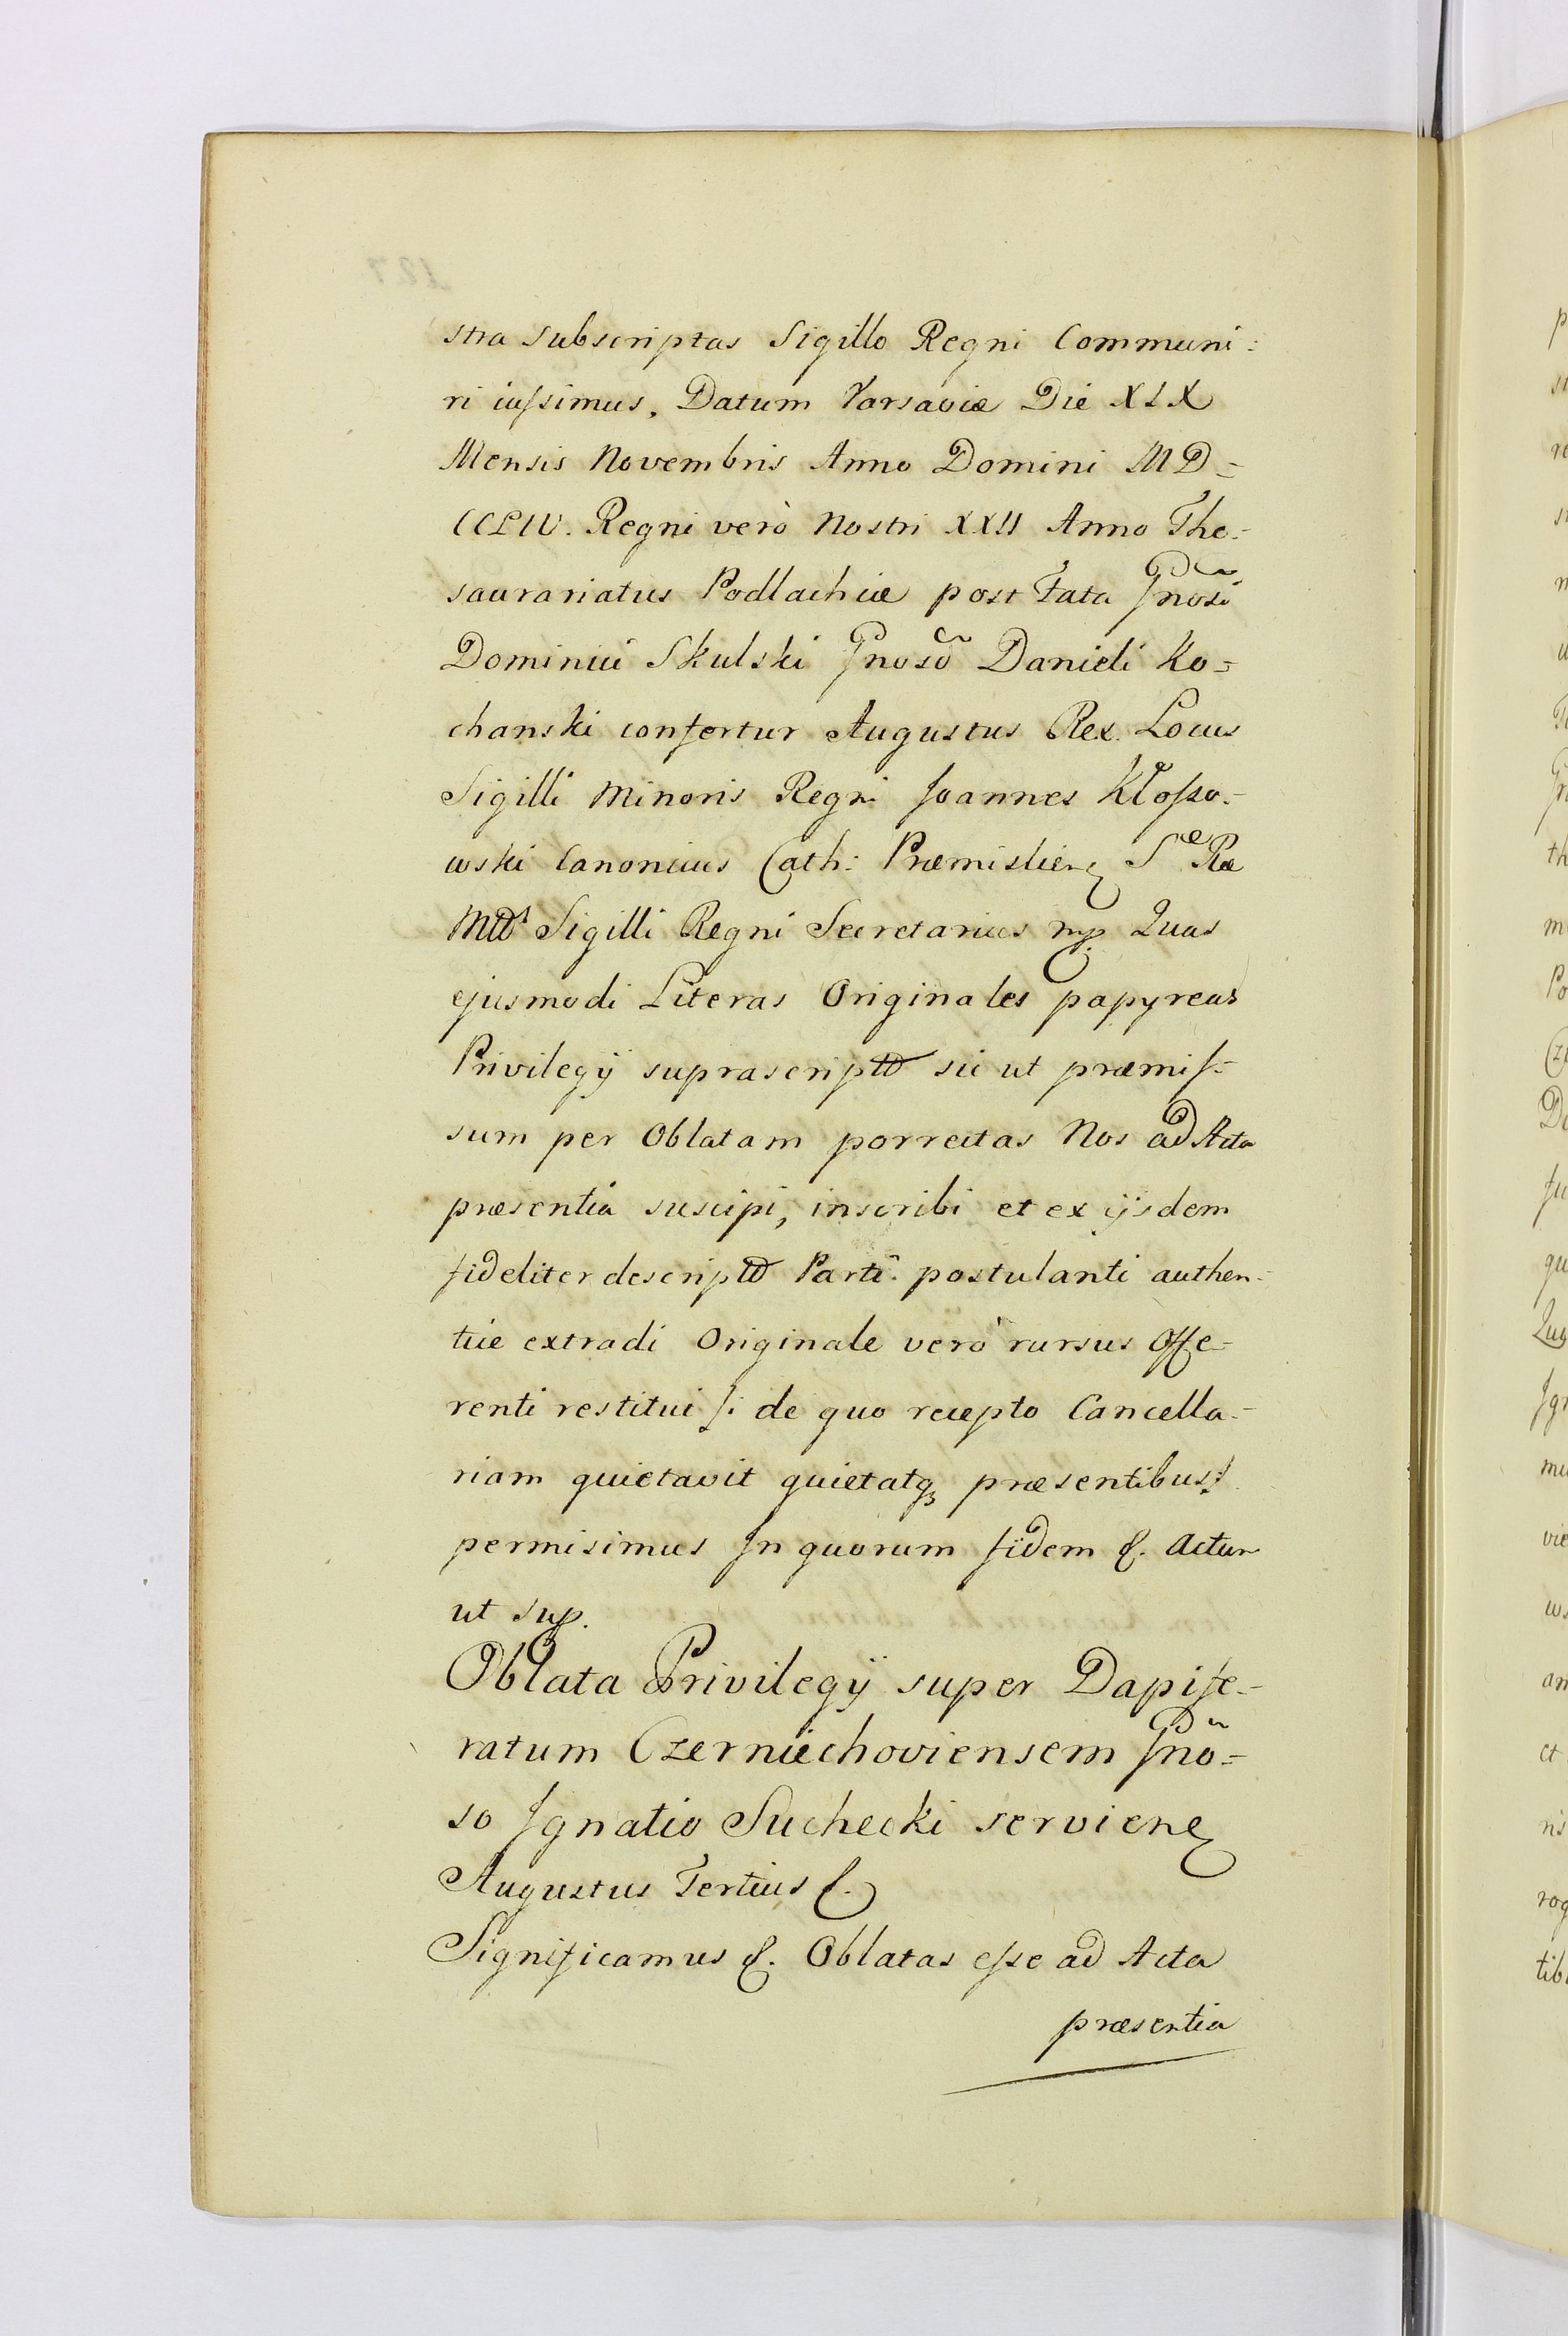 stra subscriptas Sigillo Regni Communi:
ri iussimus. Datum Varsaviæ Die XIX
Mensis Novembris Anno Domini MD=
CCLIV. Regni verò Nostri XXII Anno The=
saurariatus Podlachiæ post Fata Gnõsi
Dominici Skulski Gnosõ Danieli Ko=
chanski confertur Augustus Rex. Locus
Sigilli Minoris Regni Joannes Kłosso=
wski Canonicus Cath: Præmislien S^æ Ræ
Mtts Sigilli Regni Secretarius mp. Quas
ejusmodi Literas Originales papyreas
Privilegÿ suprascriptt sic ut præmis=
sum per Oblatam porrectas Nos ad Acta
præsentia suscipi, inscribi et ex ÿsdem
fideliter descriptt Parti postulanti authen=
tice extradi Originale verò rursus Offe=
renti restitui /: de quo recepto Cancella=
riam quietavit quietatq præsentibus :/
permisimus In quorum fidem &. Actum
ut sup.
Oblata Privilegÿ super Dapife=
ratum Czerniechoviensem Gnõ=
so Ignatio Suchecki servien
Augustus Tertius &.
Significamus &. Oblatas esse ad Acta
præsentia
127